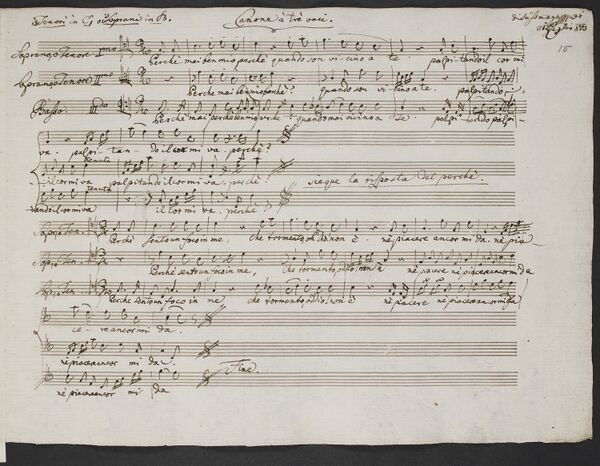 Tenori in C, o Soprani in B. Canone a trè voci.
15
Soprano, o Tenore Imo
Perchè mai ben mio perchè quando son vicino a te palpitando il cor mi
Soprano, o Tenore IIdo
Perchè mai ben mio perchè? quando son vicino a te. palpitando
Basso.
Perchè mai perchè ben mio perchè? quando son vicino a te palpitando palpi-
va. palpi-tan-do il cor mi va. perchè?
tenuta
il cor mi va palpitando il cor mi va. perchè?
siegue la risposta del perchè.
tenuta
tando il cor mi va il cor mi va. perchè?
Perchè sento un foco in me, che tormento oh dio non è. nè piacere ancor mi da. nè pia-
Perchè sento un foco in me, che tormento oh dio, non è nè piacere nè piacere ancor mi da
Perchè sento un foco in me che tormento oh dio, non è nè piacere nè piacere ancor mi da
ce-re ancor mi da.
nè piacere ancor mi da.
Fine.
nè piacere ancor mi da